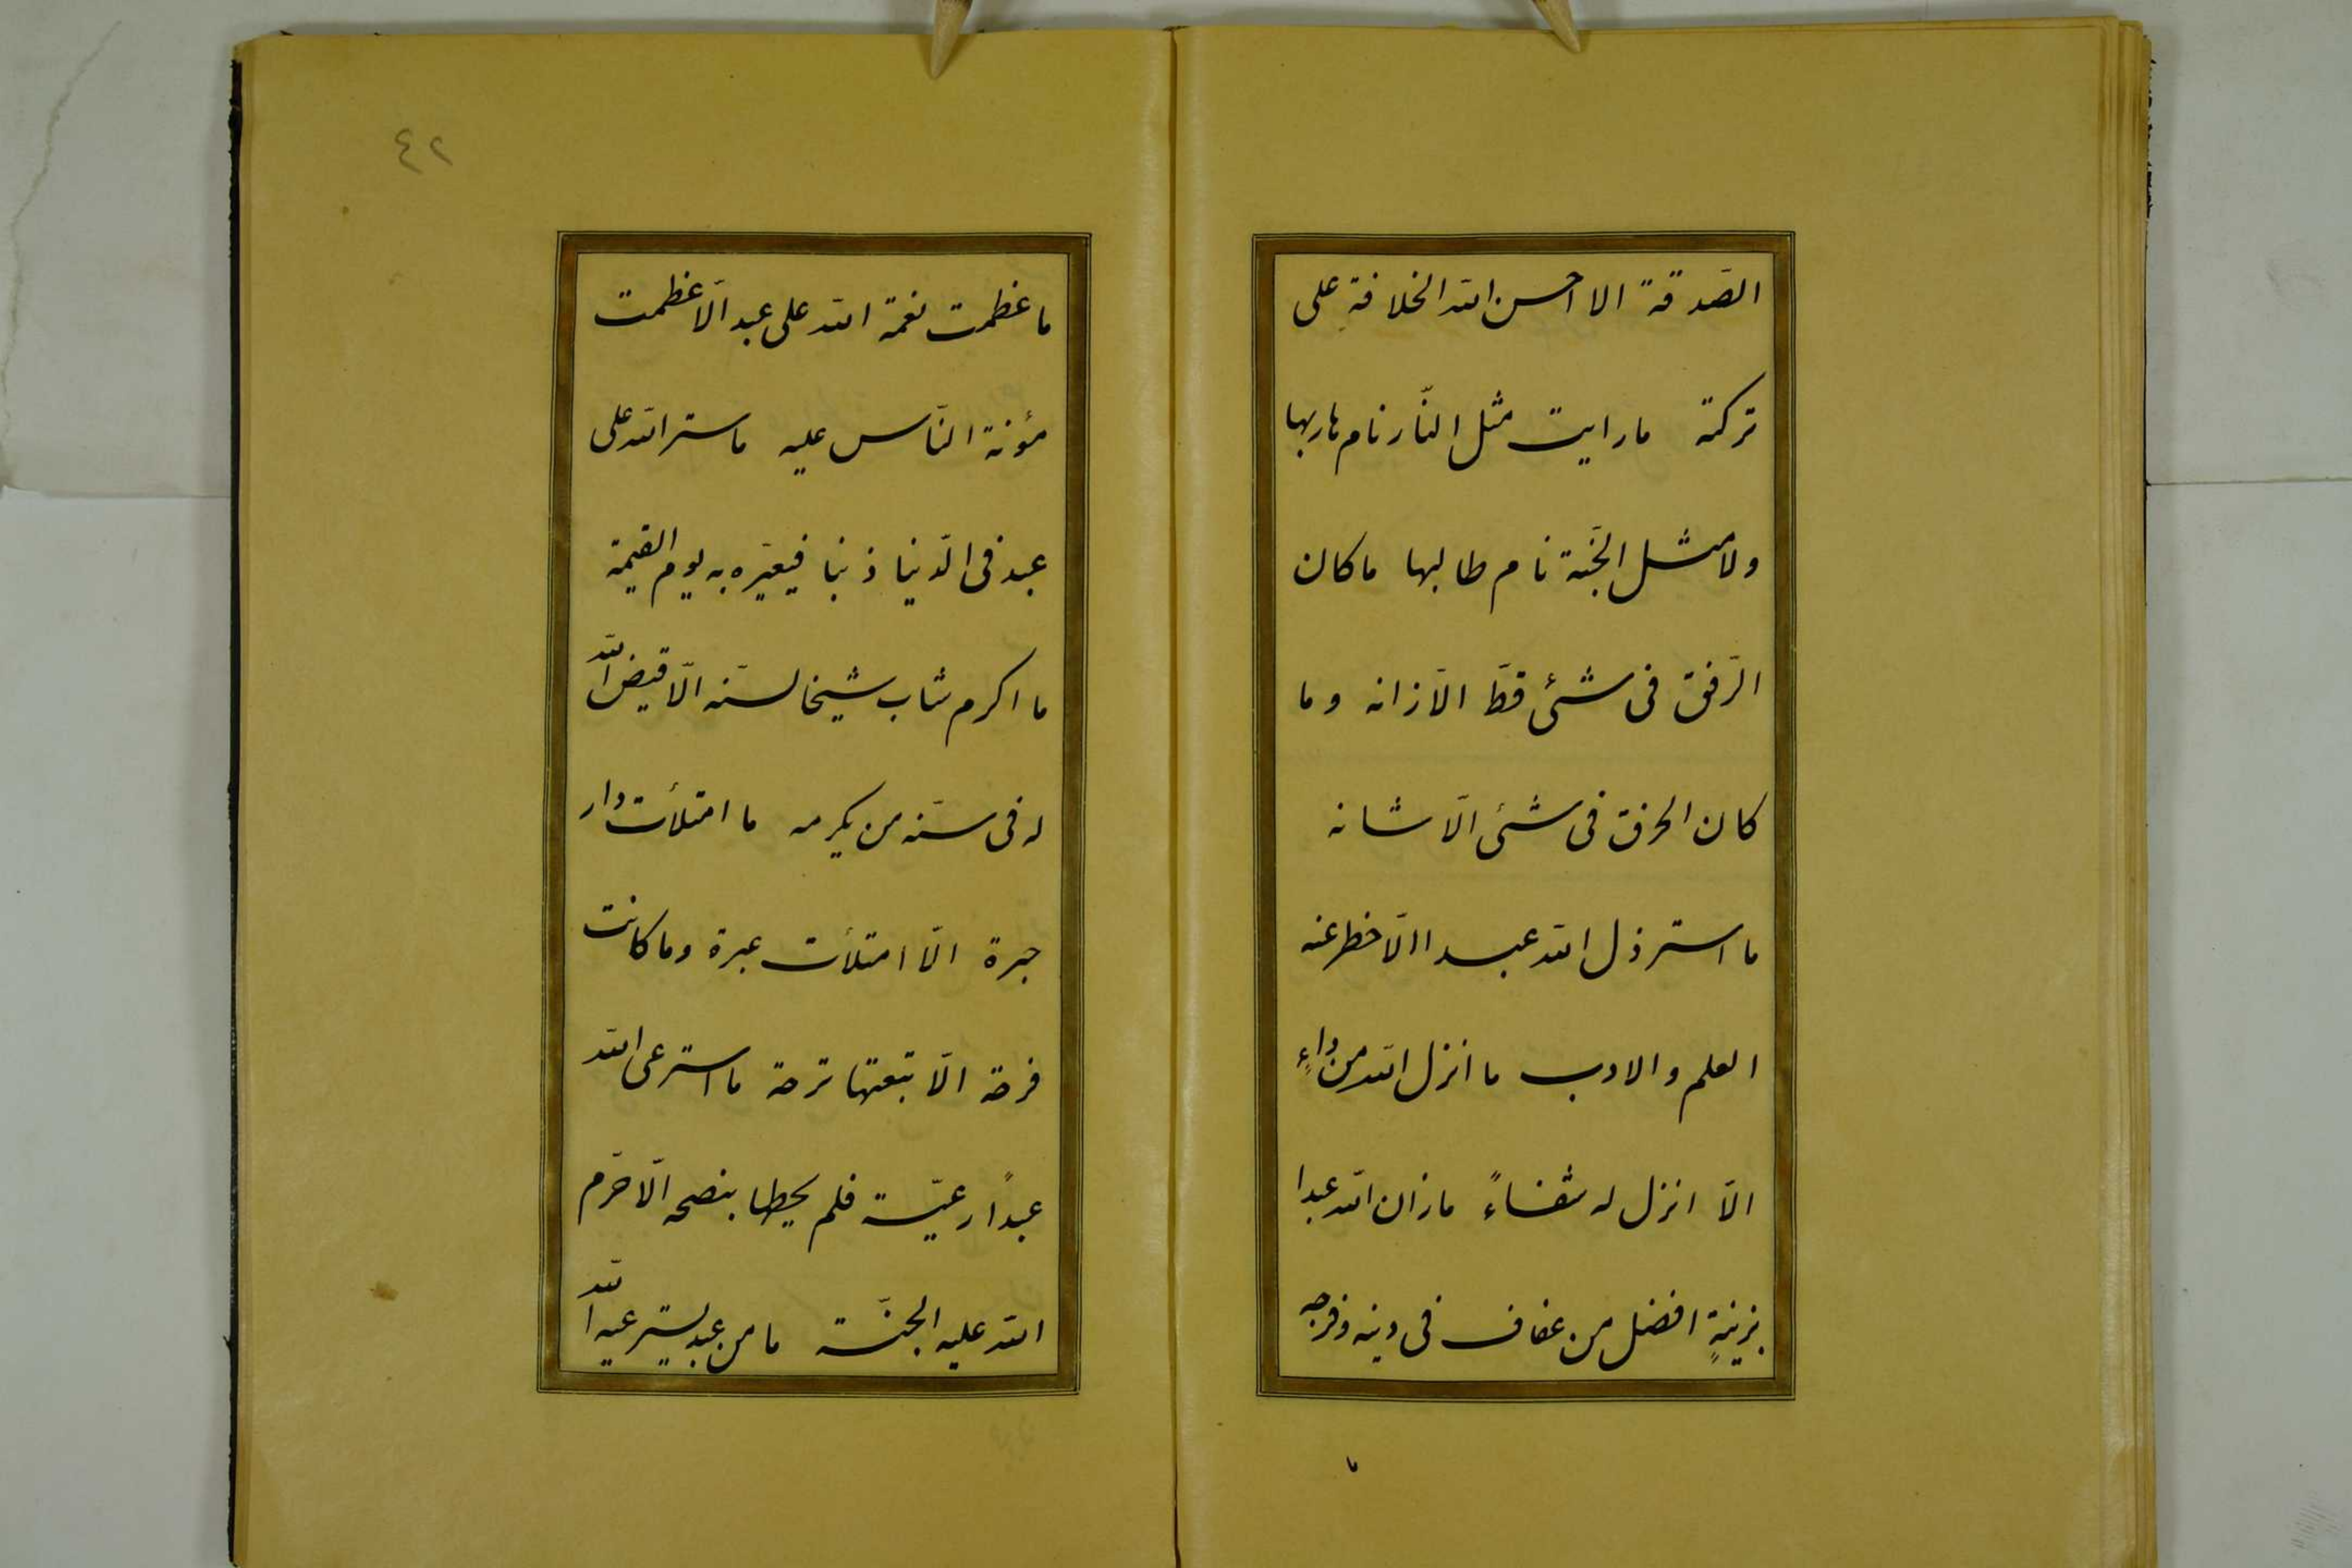 الصّدقة الا احسن الله الخلافة على
تركته ما رايت مثل النّار نام هاربها
ولا مثل الجّنة نام طالبها ما كان
الرّفق فى شئى قطّ الّا زانه و ما
كان الخرق فى شئى الّا شانه
ما استرذل الله عبدا الّا حظر عنه
العلم و الادب ما انزل الله من داءٍ
الّا انزل له شفاءً ما زان الله عبدا
بزينةٍ افضل من عفاف فى دينه و فرجه
ما
٤٢
ما عظمت نعمة الله على عبد الّا عظمت
مؤنة النّاس عليه ما ستر الله على
عبد فى الدّنيا ذنبا فيعيّره به يوم القيمة
ما اكرم شاب شيخا لسنّه الّا قيض الله
له فى سنّه من يكرمه ما امتلأت دار
حبرة الّا امتلأت عبرة وما كانت
فرحة الّا تبعتها ترحة ما استرعى الله
عبدًا رعيّة فلم يحطها بنصحه الّا حرّم
الله عليه الجنّة ما من عبد يسترعيه الله